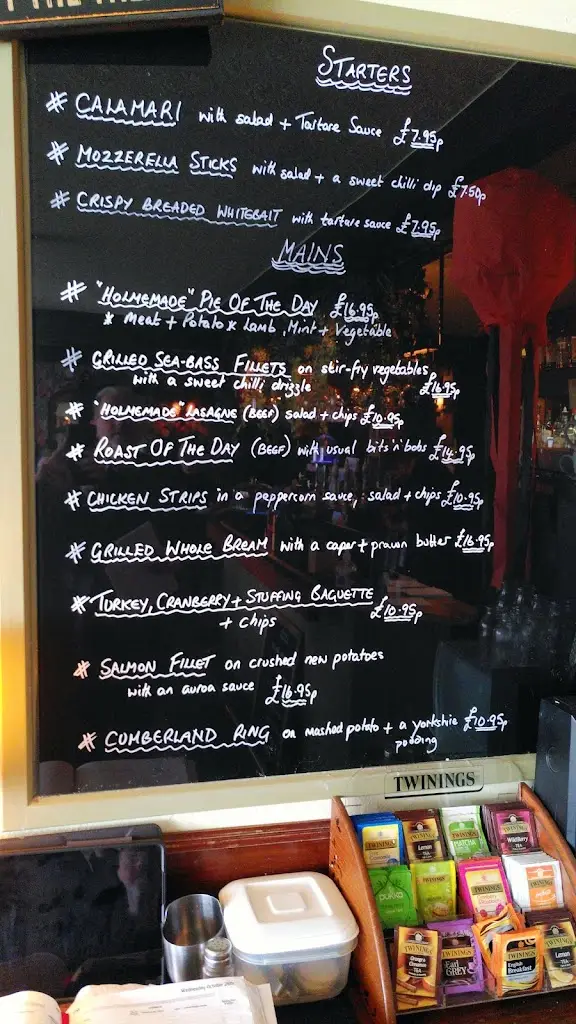 STARTERS
# CALAMARI with salad + Tartare Sauce £7.95p
# MOZZERELLA STICKS with salad + a sweet chilli dip £7.50p
# CRISPY BREADED WHITEBAIT with tartare sauce £7.95p
MAINS
# "HOMEMADE" PIE OF THE DAY £16.95p
* Meat + Potato * Lamb, Mint + Vegetable
# GRILLED SEA-BASS FILLETS on stir-fry vegetables
with a sweet chilli drizzle £16.95p
# "HOMEMADE" LASAGNE (BEEF) salad + chips £10.95p
# ROAST OF THE DAY (BEEF) with usual bits 'n' bobs £14.95p
# CHICKEN STRIPS in a peppercorn sauce, salad + chips £10.95p
# GRILLED WHOLE BREAM with a caper + prawn butter £16.95p
# TURKEY, CRANBERRY + STUFFING BAGUETTE
+ chips £10.95p
# SALMON FILLET on crushed new potatoes
with an auroa sauce £16.95p
# CUMBERLAND RING on mashed potato + a yorkshire £10.95p
pudding
TWININGS
TWININGS
TWININGS Lemon
TWININGS MATCHA
TWININGS Wildberry TEA
pukka
TWININGS
TWININGS
TWININGS
TWININGS Orange Cinnamon TEA
TWININGS Earl GREY
TWININGS English Breakfast
TWININGS Lemon TEA
Wednesday October